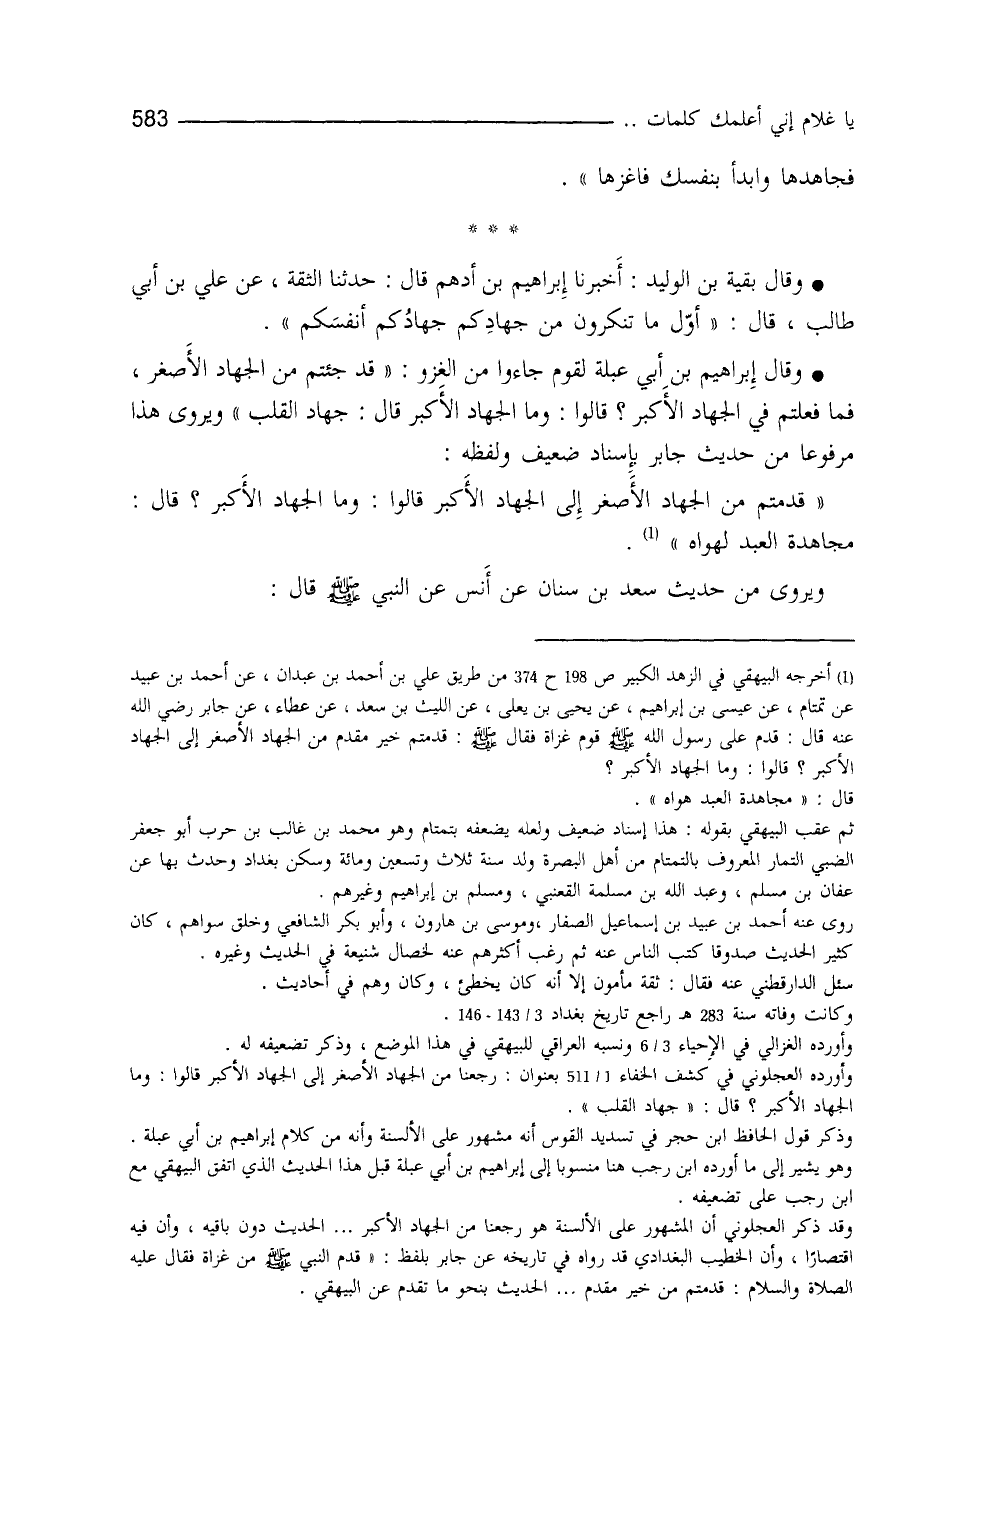 يا غلام إني أعلمك كلمات .. 583
فجاهدها وابدأ بنفسك فاغزها » .
* * *
● وقال بقية بن الوليد : أَخبرنا إِبراهيم بن أدهم قال : حدثنا الثقة ، عن علي بن أبي
طالب ، قال : « أوّل ما تنكرون من جهادِكم جهادُكم أنفسَكم » .
● وقال إِبراهيم بن أبي عبلة لقوم جاءوا من الغزو : « قد جئتم من الجهاد الأَصغر ،
فما فعلتم في الجهاد الأَكبر ؟ قالوا : وما الجهاد الأَكبر قال : جهاد القلب » ويروى هذا
مرفوعا من حديث جابر بإسناد ضعيف ولفظه :
« قدمتم من الجهاد الأَصغر إِلى الجهاد الأَكبر قالوا : وما الجهاد الأَكبر ؟ قال :
مجاهدة العبد لهواه » (1) .
ويروى من حديث سعد بن سنان عن أَنس عن النبي ﷺ قال :
(1) أخرجه البيهقي في الزهد الكبير ص 198 ح 374 من طريق علي بن أحمد بن عبدان ، عن أحمد بن عبيد
عن تمتام ، عن عيسى بن إبراهيم ، عن يحيى بن يعلى ، عن الليث بن سعد ، عن عطاء ، عن جابر رضي الله
عنه قال : قدم على رسول الله ﷺ قوم غزاة فقال ﷺ : قدمتم خير مقدم من الجهاد الأصغر إلى الجهاد
الأكبر ؟ قالوا : وما الجهاد الأكبر ؟
قال : « مجاهدة العبد هواه » .
ثم عقب البيهقي بقوله : هذا إسناد ضعيف ولعله يضعفه بتمتام وهو محمد بن غالب بن حرب أبو جعفر
الضبي التمار المعروف بالتمتام من أهل البصرة ولد سنة ثلاث وتسعين ومائة وسكن بغداد وحدث بها عن
عفان بن مسلم ، وعبد الله بن مسلمة القعنبي ، ومسلم بن إبراهيم وغيرهم .
روى عنه أحمد بن عبيد بن إسماعيل الصفار ،وموسى بن هارون ، وأبو بكر الشافعي وخلق سواهم ، كان
كثير الحديث صدوقا كتب الناس عنه ثم رغب أكثرهم عنه لخصال شنيعة في الحديث وغيره .
سئل الدارقطني عنه فقال : ثقة مأمون إلا أنه كان يخطئ ، وكان وهم في أحاديث .
وكانت وفاته سنة 283 هـ راجع تاريخ بغداد 3 / 143 - 146 .
وأورده الغزالي في الإحياء 3 / 6 ونسبه العراقي للبيهقي في هذا الموضع ، وذكر تضعيفه له .
وأورده العجلوني في كشف الخفاء 1 / 511 بعنوان : رجعنا من الجهاد الأصغر إلى الجهاد الأكبر قالوا : وما
الجهاد الأكبر ؟ قال : « جهاد القلب » .
وذكر قول الحافظ ابن حجر في تسديد القوس أنه مشهور على الألسنة وأنه من كلام إبراهيم بن أبي عبلة .
وهو يشير إلى ما أورده ابن رجب هنا منسوبا إلى إبراهيم بن أبي عبلة قبل هذا الحديث الذي اتفق البيهقي مع
ابن رجب على تضعيفه .
وقد ذكر العجلوني أن المشهور على الألسنة هو رجعنا من الجهاد الأكبر ... الحديث دون باقيه ، وأن فيه
اقتصارًا ، وأن الخطيب البغدادي قد رواه في تاريخه عن جابر بلفظ : « قدم النبي ﷺ من غزاة فقال عليه
الصلاة والسلام : قدمتم من خير مقدم ... الحديث بنحو ما تقدم عن البيهقي .